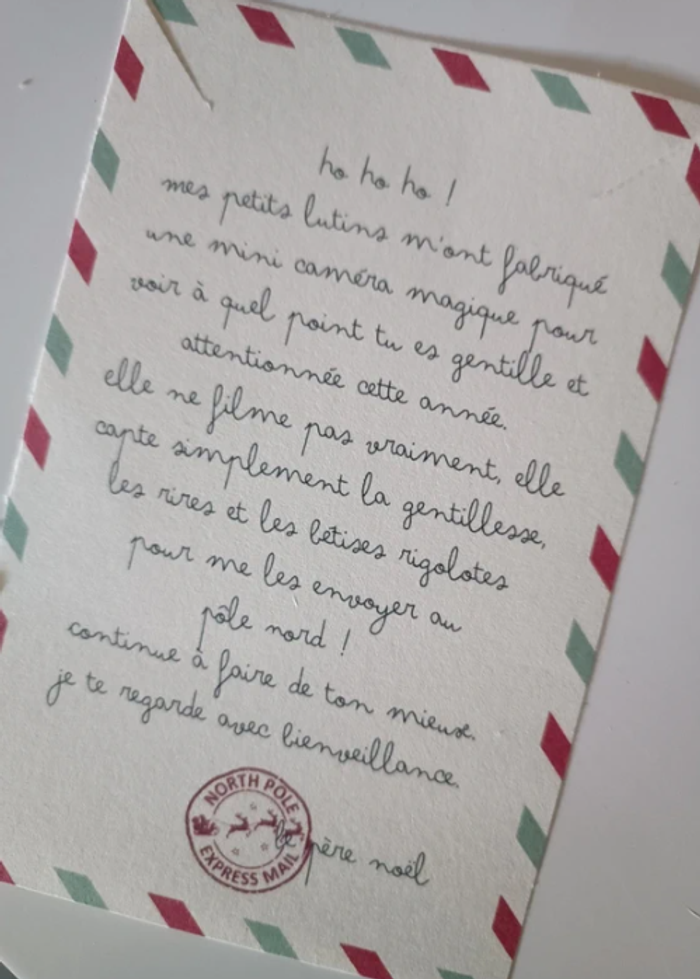 ho ho ho !
mes petits lutins m'ont fabriqué
une mini caméra magique pour
voir à quel point tu es gentille et
attentionnée cette année.
elle ne filme pas vraiment, elle
capte simplement la gentillesse,
les rires et les bêtises rigolotes
pour me les envoyer au
pôle nord !
continue à faire de ton mieux.
je te regarde avec bienveillance.
NORTH POLE
EXPRESS MAIL
le père noël